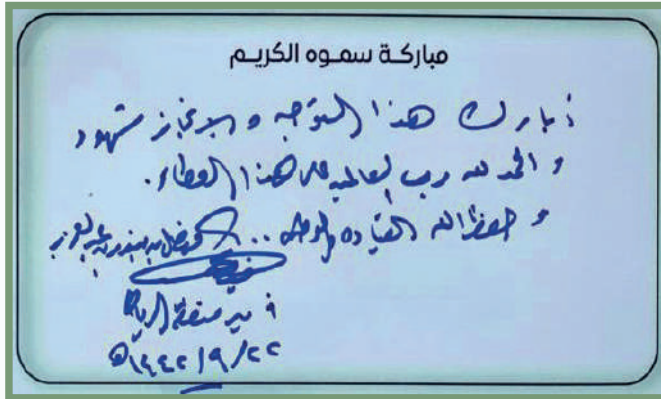 مباركة سموه الكريم
أبارك هذا التوجه والإنجاز مشهود
والحمد لله رب العالمين على هذا العطاء.
وحفظ الله القيادة والوطن .. فيصل بن بندر بن عبدالعزيز
أمير منطقة الرياض
١٤٤٢/٩/٢٢هـ